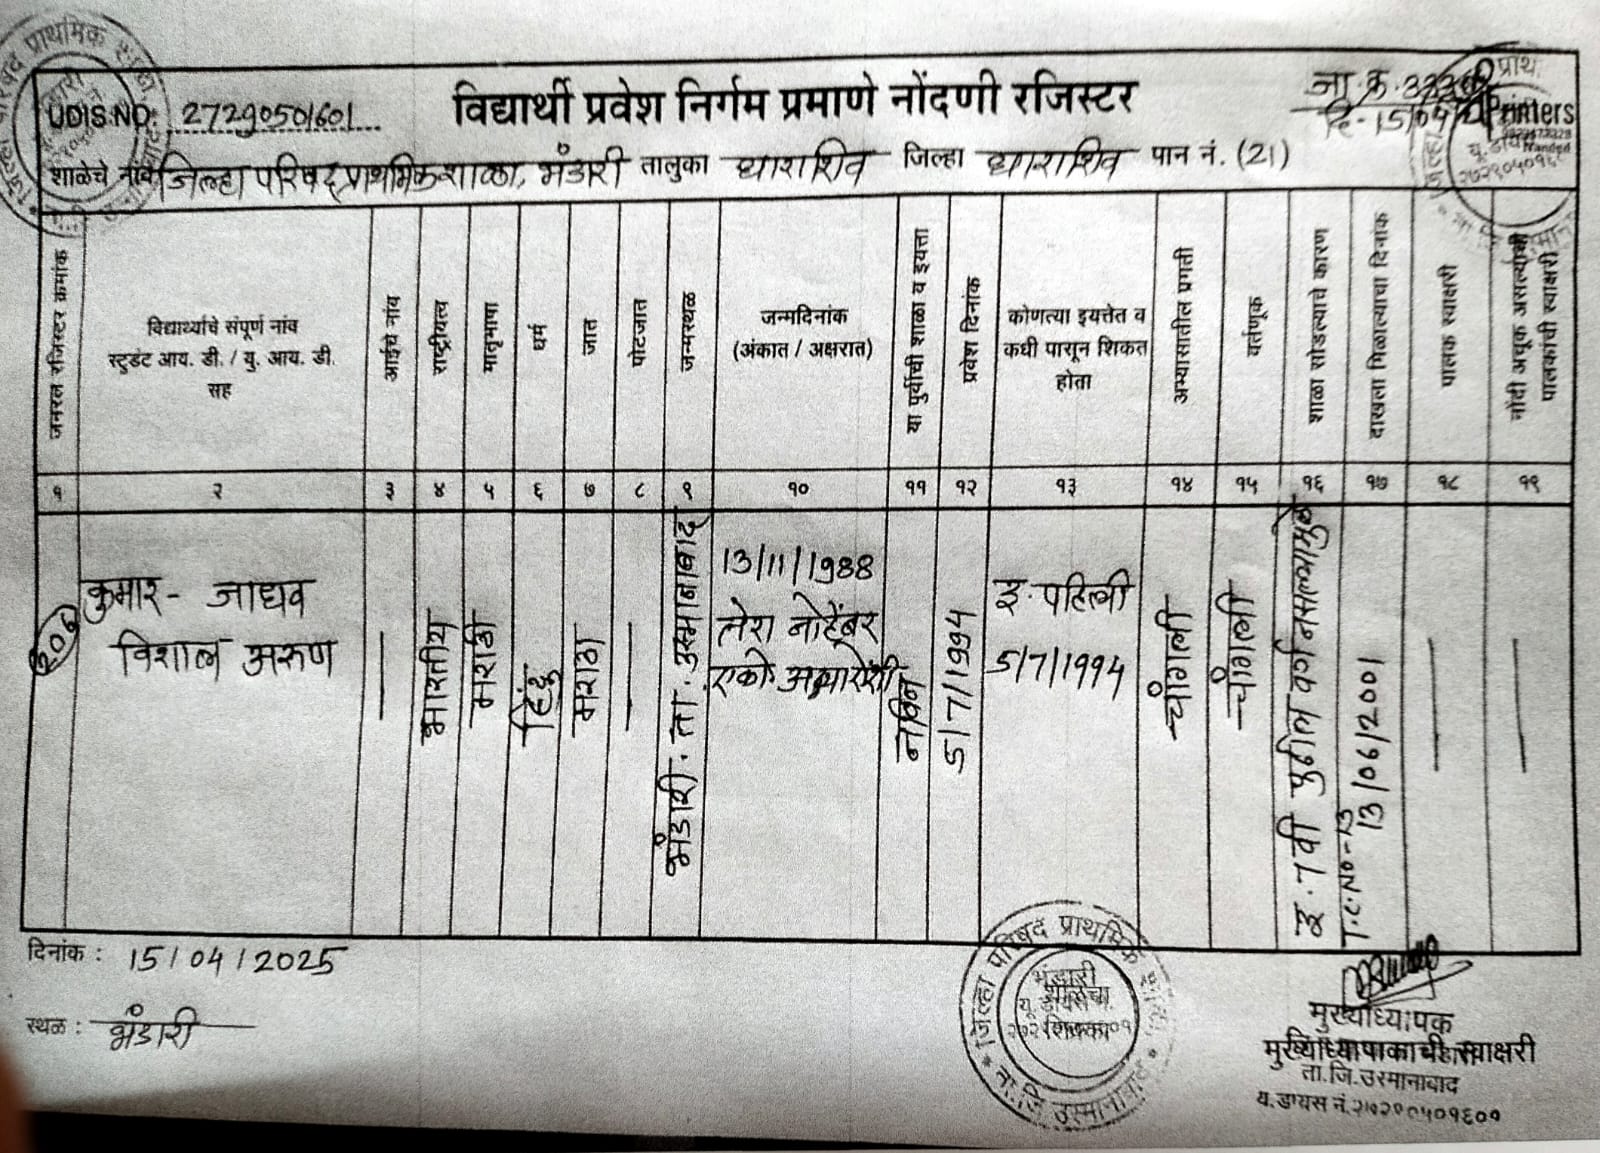 विद्यार्थी प्रवेश निर्गम प्रमाणे नोंदणी रजिस्टर
UDIS.NO: 27290501601
जा.क्र.
दि-15/04/
Printers
शाळेचे नांव जिल्हा परिषद प्राथमिक शाळा, भंडारी तालुका धाराशिव जिल्हा धाराशिव पान नं. (21)
जनरल रजिस्टर क्रमांक
विद्यार्थ्याचे संपूर्ण नांव
स्टुडंट आय. डी. / यु. आय. डी.
सह
आईचे नांव
राष्ट्रीयत्व
मातृभाषा
धर्म
जात
पोटजात
जन्मस्थळ
जन्मदिनांक
(अंकात / अक्षरात)
या पुर्वीची शाळा व इयत्ता
प्रवेश दिनांक
कोणत्या इयत्तेत व
कधी पासून शिकत
होता
अभ्यासातील प्रगती
वर्तणूक
शाळा सोडल्याचे कारण
दाखला मिळाल्याचा दिनांक
पालक स्वाक्षरी
नोंदी अचूक असल्याची
पालकाची स्वाक्षरी
१ २ ३ ४ ५ ६ ७ ८ ९ १० ११ १२ १३ १४ १५ १६ १७ १८ १९
कुमार - जाधव
विशाल अरुण
भारतीय
मराठी
हिंदू
मराठा
भंडारी. ता. उस्मानाबाद
13/11/1988
तेरा नोव्हेंबर
नविन
5/7/1994
इ. पहिली
5/7/1994
चांगली
चांगली
इ. 7वी पुढील वर्ग नसल्यामुळे
T.C.No-13
13/06/2001
दिनांक : 15/04/2025
स्थळ : भंडारी
जिल्हा परिषद प्राथमिक शाळा
भंडारी
ता.जि उस्मानाबाद
मुख्याध्यापक
मुख्याध्यापकाची स्वाक्षरी
ता.जि.उस्मानाबाद
यु.डायस नं.२७२९०५०१६०१